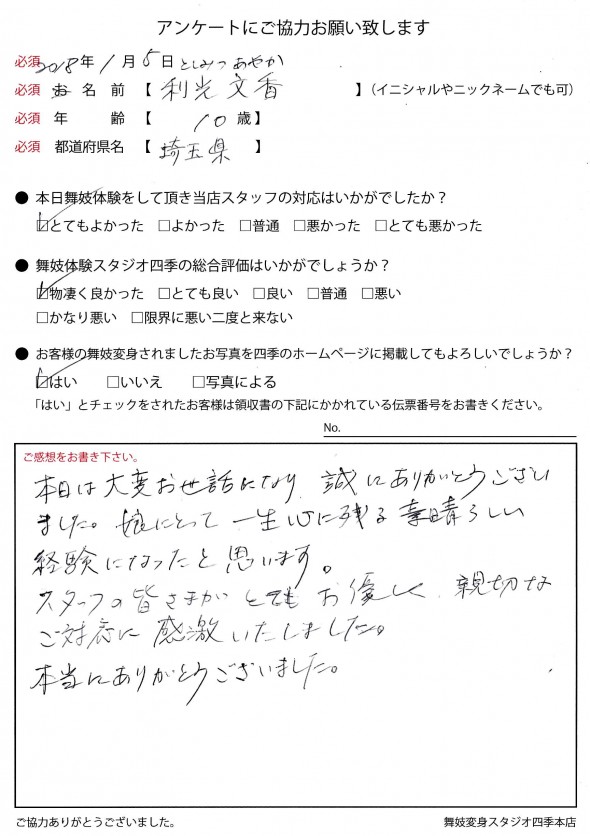 アンケートにご協力お願い致します
必須 2018年 1月 5日 としみつ あやか
必須 お 名 前 【 利光 文香 】（イニシャルやニックネームでも可）
必須 年 齢 【 10 歳】
必須 都道府県名 【 埼玉県 】
● 本日舞妓体験をして頂き当店スタッフの対応はいかがでしたか？
☑とてもよかった □よかった □普通 □悪かった □とても悪かった
● 舞妓体験スタジオ四季の総合評価はいかがでしょうか？
☑物凄く良かった □とても良い □良い □普通 □悪い
□かなり悪い □限界に悪い二度と来ない
● お客様の舞妓変身されましたお写真を四季のホームページに掲載してもよろしいでしょうか？
☑はい □いいえ □写真による
「はい」とチェックをされたお客様は領収書の下記にかかれている伝票番号をお書きください。
No.
ご感想をお書き下さい。
本日は大変お世話になり、誠にありがとうござい
ました。娘にとって一生心に残る素晴らしい
経験になったと思います。
スタッフの皆さまがとてもお優しく、親切な
ご対応に感激いたしました。
本当にありがとうございました。
ご協力ありがとうございました。 舞妓変身スタジオ四季本店